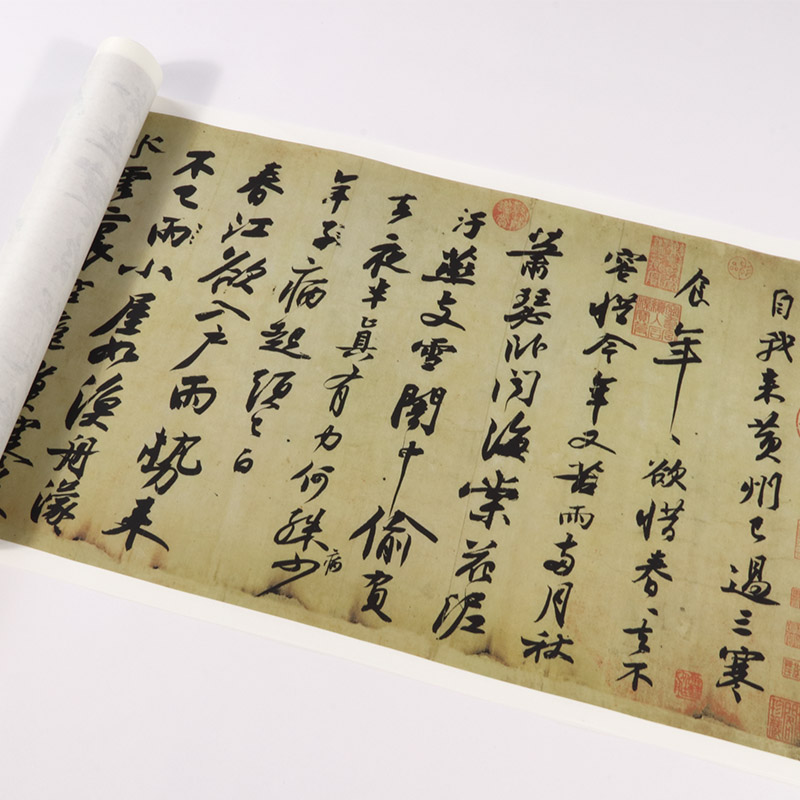 自我来黃州已過三寒
食年〻欲惜春〻去不
容惜今年又苦雨兩月秋
蕭瑟卧聞海棠花泥
汙燕支雪闇中偷負
去夜半真有力何殊少
病
年子病起頭已白
春江欲入户雨勢来
不已雨小屋如漁舟濛
水雲裏空庖煮寒